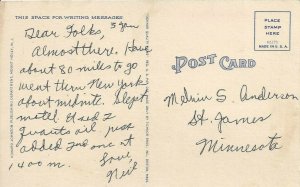 THIS SPACE FOR WRITING MESSAGES
5 pm
Dear Folks,
Almost there. Have
about 80 miles to go
went thru New York
about midnite. Slept
motel. Used 2
quarts oil, just
added 2nd one at
1400 m.
Love
Neil
POST CARD
PLACE
STAMP
HERE
MADE IN U.S.A.
Melvin S. Anderson
St. James
Minnesota